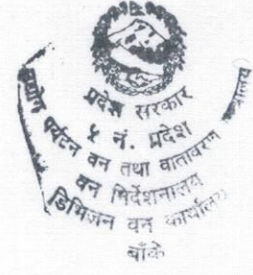 प्रदेश सरकार
५ नं. प्रदेश
उद्योग पर्यटन वन तथा वातावरण मन्त्रालय
वन निर्देशनालय
डिभिजन वन कार्यालय
बाँके